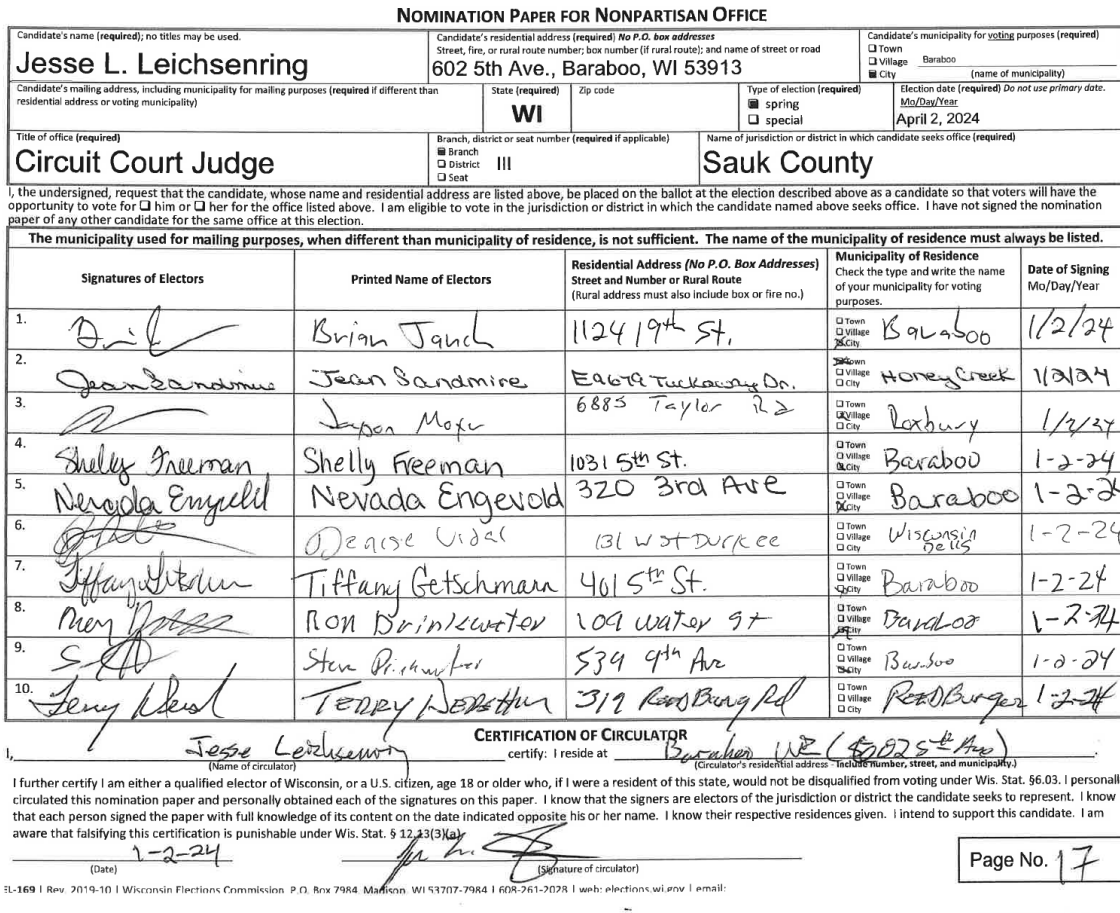 NOMINATION PAPER FOR NONPARTISAN OFFICE
Candidate's name (required); no titles may be used.
Jesse L. Leichsenring
Candidate's residential address (required) No P.O. box addresses
Street, fire, or rural route number; box number (if rural route); and name of street or road
602 5th Ave., Baraboo, WI 53913
Candidate's municipality for voting purposes (required)
☐ Town
☐ Village Baraboo
■ City (name of municipality)
Candidate's mailing address, including municipality for mailing purposes (required if different than
residential address or voting municipality)
State (required)
WI
Zip code
Type of election (required)
■ spring
☐ special
Election date (required) Do not use primary date.
Mo/Day/Year
April 2, 2024
Title of office (required)
Circuit Court Judge
Branch, district or seat number (required if applicable)
■ Branch
☐ District III
☐ Seat
Name of jurisdiction or district in which candidate seeks office (required)
Sauk County
I, the undersigned, request that the candidate, whose name and residential address are listed above, be placed on the ballot at the election described above as a candidate so that voters will have the
opportunity to vote for ☐ him or ☐ her for the office listed above. I am eligible to vote in the jurisdiction or district in which the candidate named above seeks office. I have not signed the nomination
paper of any other candidate for the same office at this election.
The municipality used for mailing purposes, when different than municipality of residence, is not sufficient. The name of the municipality of residence must always be listed.
Signatures of Electors
Printed Name of Electors
Residential Address (No P.O. Box Addresses)
Street and Number or Rural Route
(Rural address must also include box or fire no.)
Municipality of Residence
Check the type and write the name
of your municipality for voting
purposes.
Date of Signing
Mo/Day/Year
1. Brian 1124 19th St. Town Village City Baraboo 1/2/24
2. Jean Sandmire Jean Sandmire E9679 Tuckaway Dr. Town Village City Honey Creek 1/2/24
3. 6885 Taylor Rd Town Village City Roxbury 1/2/24
4. Shelly Freeman Shelly Freeman 1031 5th St. Town Village City Baraboo 1-2-24
5. Nevada Engevold Nevada Engevold 320 3rd Ave Town Village City Baraboo 1-2-2
6. Denise Vidal 131 W Durkee Town Village City Wisconsin Dells 1-2-24
7. Tiffany Getschmann 401 5th St. Town Village City Baraboo 1-2-24
8. Ron Drinkwater 109 Water St Town Village City Baraboo 1-2-24
9. Steve 539 9th Ave Town Village City Baraboo 1-2-24
10. Terry TERRY 319 ReedBurg Rd Town Village City ReedBurger 1-2-24
CERTIFICATION OF CIRCULATOR
I, Jesse Leichsenring certify: I reside at Baraboo WI (602 5th Ave)
(Name of circulator) (Circulator's residential address - Include number, street, and municipality.)
I further certify I am either a qualified elector of Wisconsin, or a U.S. citizen, age 18 or older who, if I were a resident of this state, would not be disqualified from voting under Wis. Stat. §6.03. I personall
circulated this nomination paper and personally obtained each of the signatures on this paper. I know that the signers are electors of the jurisdiction or district the candidate seeks to represent. I know
that each person signed the paper with full knowledge of its content on the date indicated opposite his or her name. I know their respective residences given. I intend to support this candidate. I am
aware that falsifying this certification is punishable under Wis. Stat. § 12.13(3)(a).
1-2-24
(Date) (Signature of circulator)
Page No. 17
EL-169 | Rev. 2019-10 | Wisconsin Elections Commission, P.O. Box 7984, Madison, WI 53707-7984 | 608-261-2028 | web: elections.wi.gov | email: